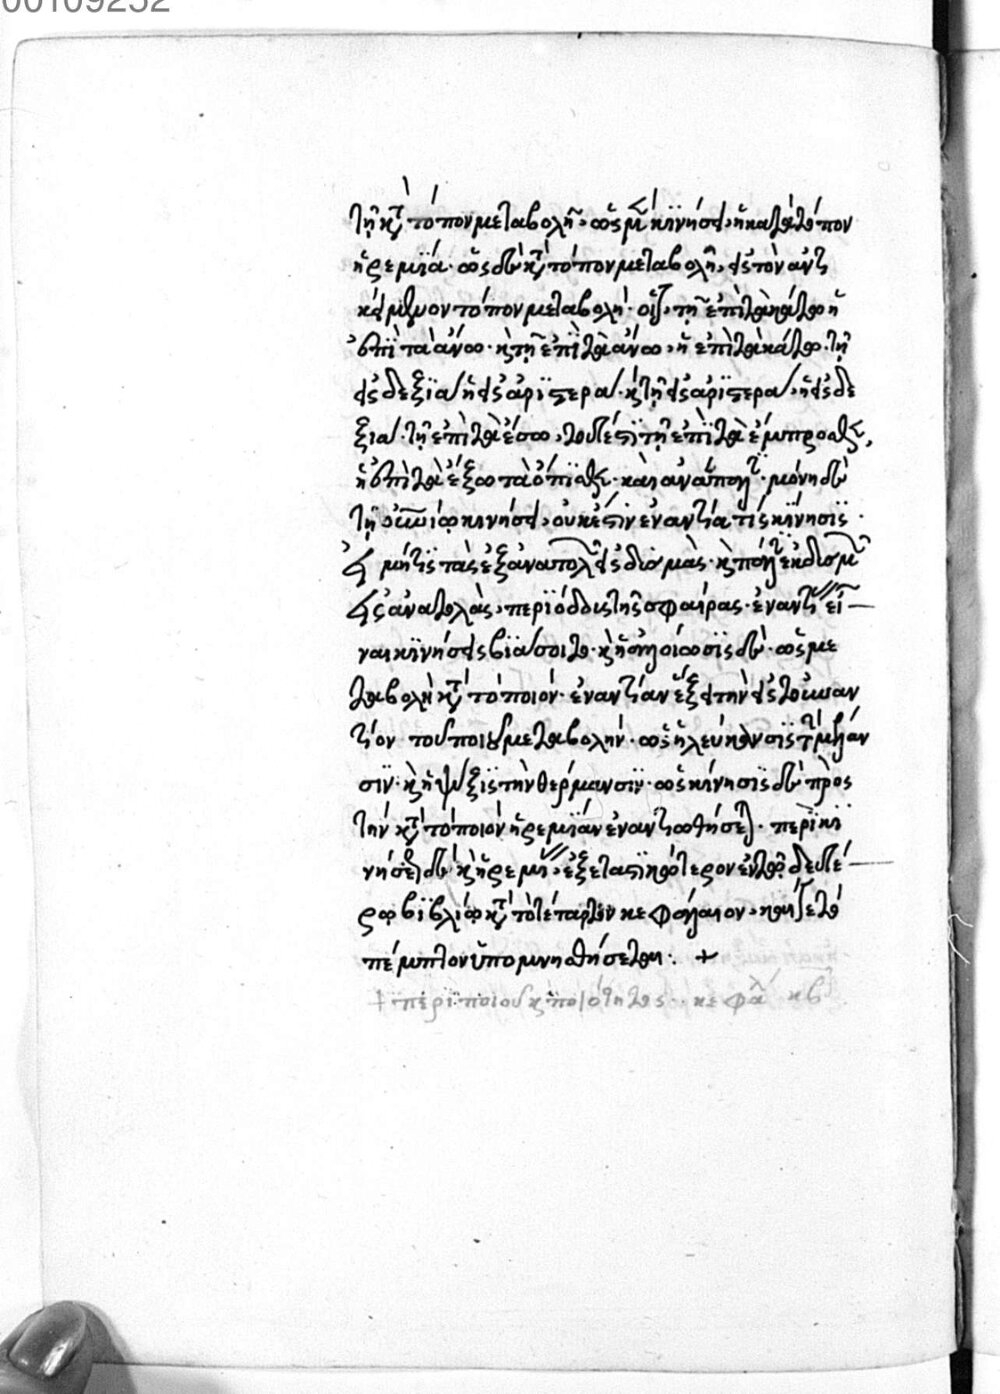 00109252
τῇ κατὰ τόπον μεταβολῇ, ὡς μὲν κίνησει, ἡ κατὰ τόπον
ἠρεμία· ὡς δὲ κατὰ τόπον μεταβολῇ, εἰς τὸν ἀντι
κείμενον τόπον μεταβολή· οἷον, τῇ ἐπὶ τὰ κάτω ἡ
ἐπὶ τὰ ἄνω· καὶ τῇ ἐπὶ τὰ ἄνω, ἡ ἐπὶ τὰ κάτω· τῇ
εἰς δεξιὰ ἡ εἰς ἀριστερά· καὶ τῇ εἰς ἀριστερά, ἡ εἰς δε
ξιά· τῇ ἐπὶ τὰ ἔσω, τουτέστι τῇ ἐπὶ τὰ ἔμπροσθεν,
ἡ ἐπὶ τὰ ἔξω τὰ ὄπισθεν· καὶ ἀνάπαλιν· μόνῃ δὲ
τῇ κινήσει, οὐκ ἔστιν ἐναντία τις κίνησις·
εἰ μή τις τὰς ἐξ ἀνατολῆς εἰς δυσμὰς· καὶ πάλιν ἐκ δυσμῶν
εἰς ἀνατολὰς, περιόδους τῆς σφαίρας· ἐναντίας εἶ
ναι κινήσεις βιάσοιτο· καὶ ἡ ἀλλοίωσις δὲ· ὡς με
ταβολὴ κατὰ τὸ ποιόν· ἐναντίαν ἕξει τὴν εἰς τοὐναν
τίον τοῦ ποιοῦ μεταβολήν· ὡς ἡ λεύκανσις τὴν μέλαν
σιν· καὶ ἡ ψύξις τὴν θέρμανσιν· ὡς κίνησις δὲ πρὸς
τὴν κατὰ τὸ ποιὸν ἠρεμίαν ἐναντιωθήσεται· περὶ κι
νήσεως δὲ καὶ ἠρεμίας, ἐξεταστικώτερον ἐν τῷ δευτέ
ρῳ βιβλίῳ κατὰ τὸ τέταρτον κεφάλαιον, καὶ τὸ
πέμπτον ὑπομνηθήσεται· +
+ περὶ ποιοῦ καὶ ποιότητος· κεφαλ κβ